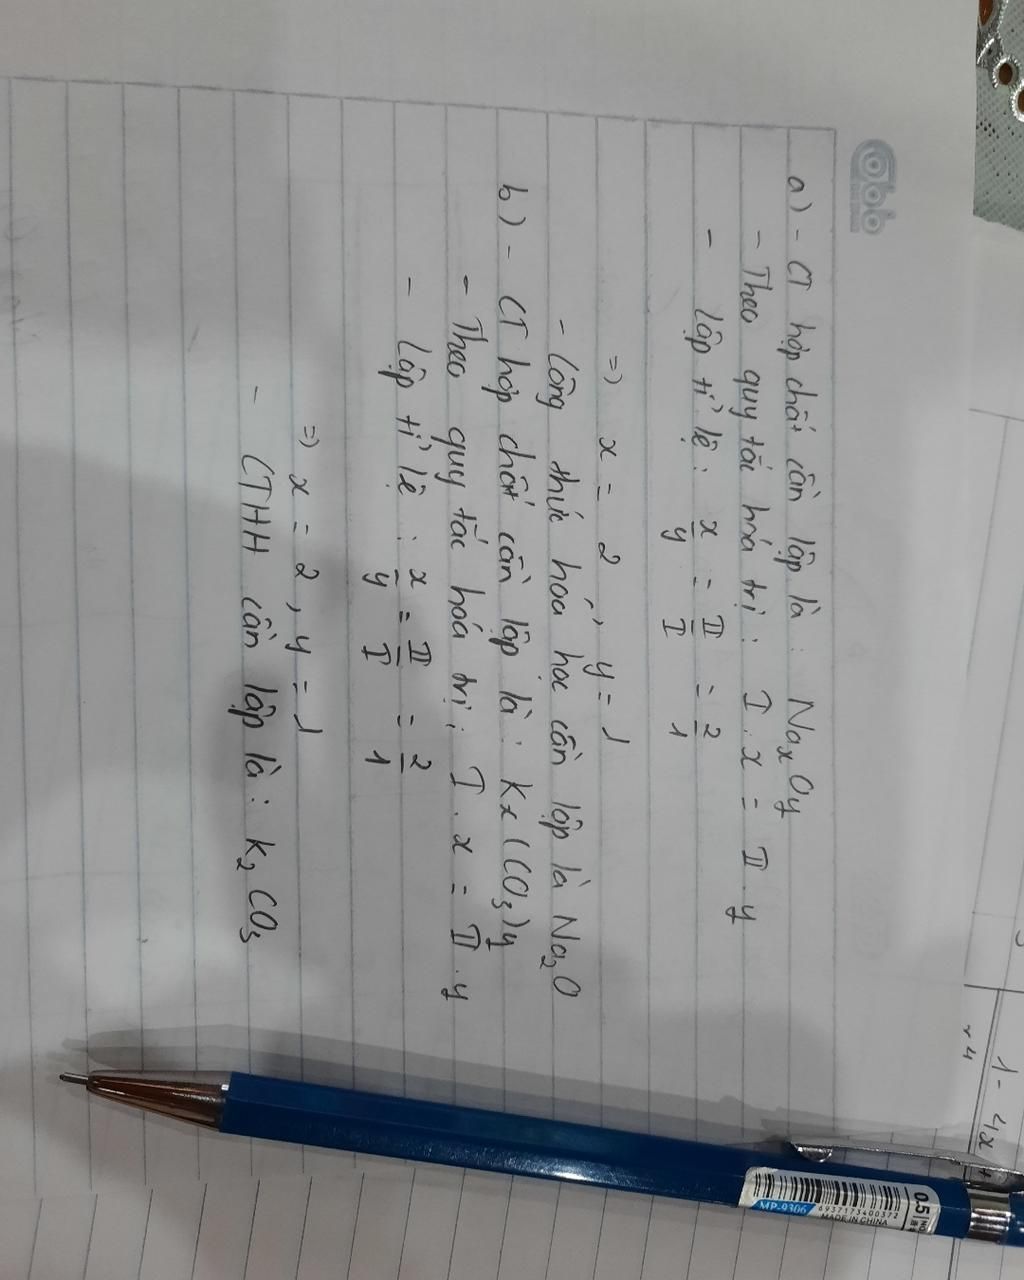 Cabb
a) - CT hợp chất cần lập là : NaxOy
- Theo quy tắc hoá trị : I . x = II . y
- Lập tỉ lệ : x/y = II/I = 2/1
=) x = 2 , y = 1
- Công thức hóa học cần lập là Na2O
b) - CT hợp chất cần lập là : Kx(CO3)y
- Theo quy tắc hoá trị : I . x = II . y
- Lập tỉ lệ : x/y = II/I = 2/1
=) x = 2 , y = 1
- CTHH cần lập là : K2CO3
1 - 4x
0.5
6937173400372
MP-9306
MADE IN CHINA